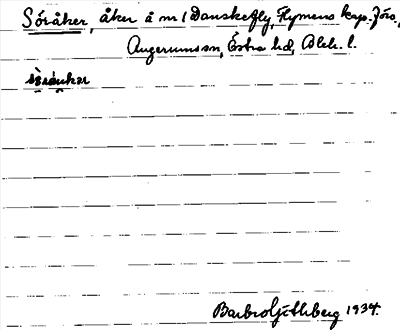 Söråker, åker å nr 1 Danskefly, Flymens krp. förs.,
Augerums sn, Östra hd, Blek. l.
sö̀råukar
Barbro Göthberg 1934.